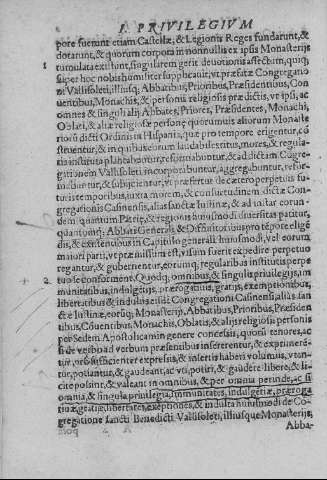 I. PRIVILEGIVM
pore fuerunt etiam Castellæ, & Legionis Reges fundarunt, &
dotarunt, & quorum corpora in nonnullis ex ipsis Monasterijs
tumulata extunt, singularem gerit deuotionis affectum, quiq;
super hoc nobis humiliter supplicauit, vt præfatæ Congregano
ni Vallisoleti, illiusq; Abbatibus, Prioribus, Præsidentibus, Con
uentibus, Monachis, & personis religiosis prædictis, vt ipsi, ac
omnes & singuli alij Abbates, Priores, Præsidentes, Monachi,
Oblati, & aliæ religiosæ personę quorumuis aliorum Monaste
riorū dicti Ordinis in Hispania, quæ pro tempore erigentur, cō
struentur, & in quibus eorum laudabiles ritus, mores, & regula-
ria instituta reformabuntur, & ad dictam Cōgre-
gationem Vallisoleti, incorporabuntur, aggregabuntur,
& subijcientur, vt præfertur de cætero perpetuis fu-
turis temporibus, iuxta morem, & consuetudinem dictæ Con-
gregationis Casinensis, alias sanctæ Iustinæ, & ad instar eorun-
dem quantum Patriæ, & regionis huiusmodi diuersitas patitur,
quantumq; Abbati Generali, & Diffinitoribus pro tēpore eligē
dis, & existentibus in Capitulo generali huiusmodi, vel eorum
maiori parti, vt præmissum est, visum fuerit expedire perpetuo
regantur, & gubernentur, eorumq; regularibus institutis perpe
tuo se conforment. Quodq; omnibus, & singulis priuilegijs, im
munitatibus, indulgētijs, prærogatiuis, gratijs, exemptionibus,
libertatibus & indultis eidē Congregationi Casinensi, alias san
ctæ Iustinæ, eorūq; Monasterijs, Abbatibus, Prioribus, Præsiden
tibus, Cōuentibus, Monachis, Oblatis, & alijs religiosis personis
per Sedem Apostolicam in genere concessis, quorū tenores, ac
si de verbo ad verbum præsentibus insererentur, & exprimerē-
tur, pro sufficienter expressis, & insertis haberi volumus, vtan-
tur, potiantur, & gaudeant, ac vti, potiri, & gaudere libere, & li-
cite possint, & valeant in omnibus, & per omnia perinde, ac si
omnia, & singula priuilegia, immunitates, indulgētiæ, præroga
tiuæ, gratiæ, libertates, exēptiones, & indulta huiusmodi de Cō
gregatione Sancti Benedicti Vallisoleti, illiusque Monasterijs,
Abba-